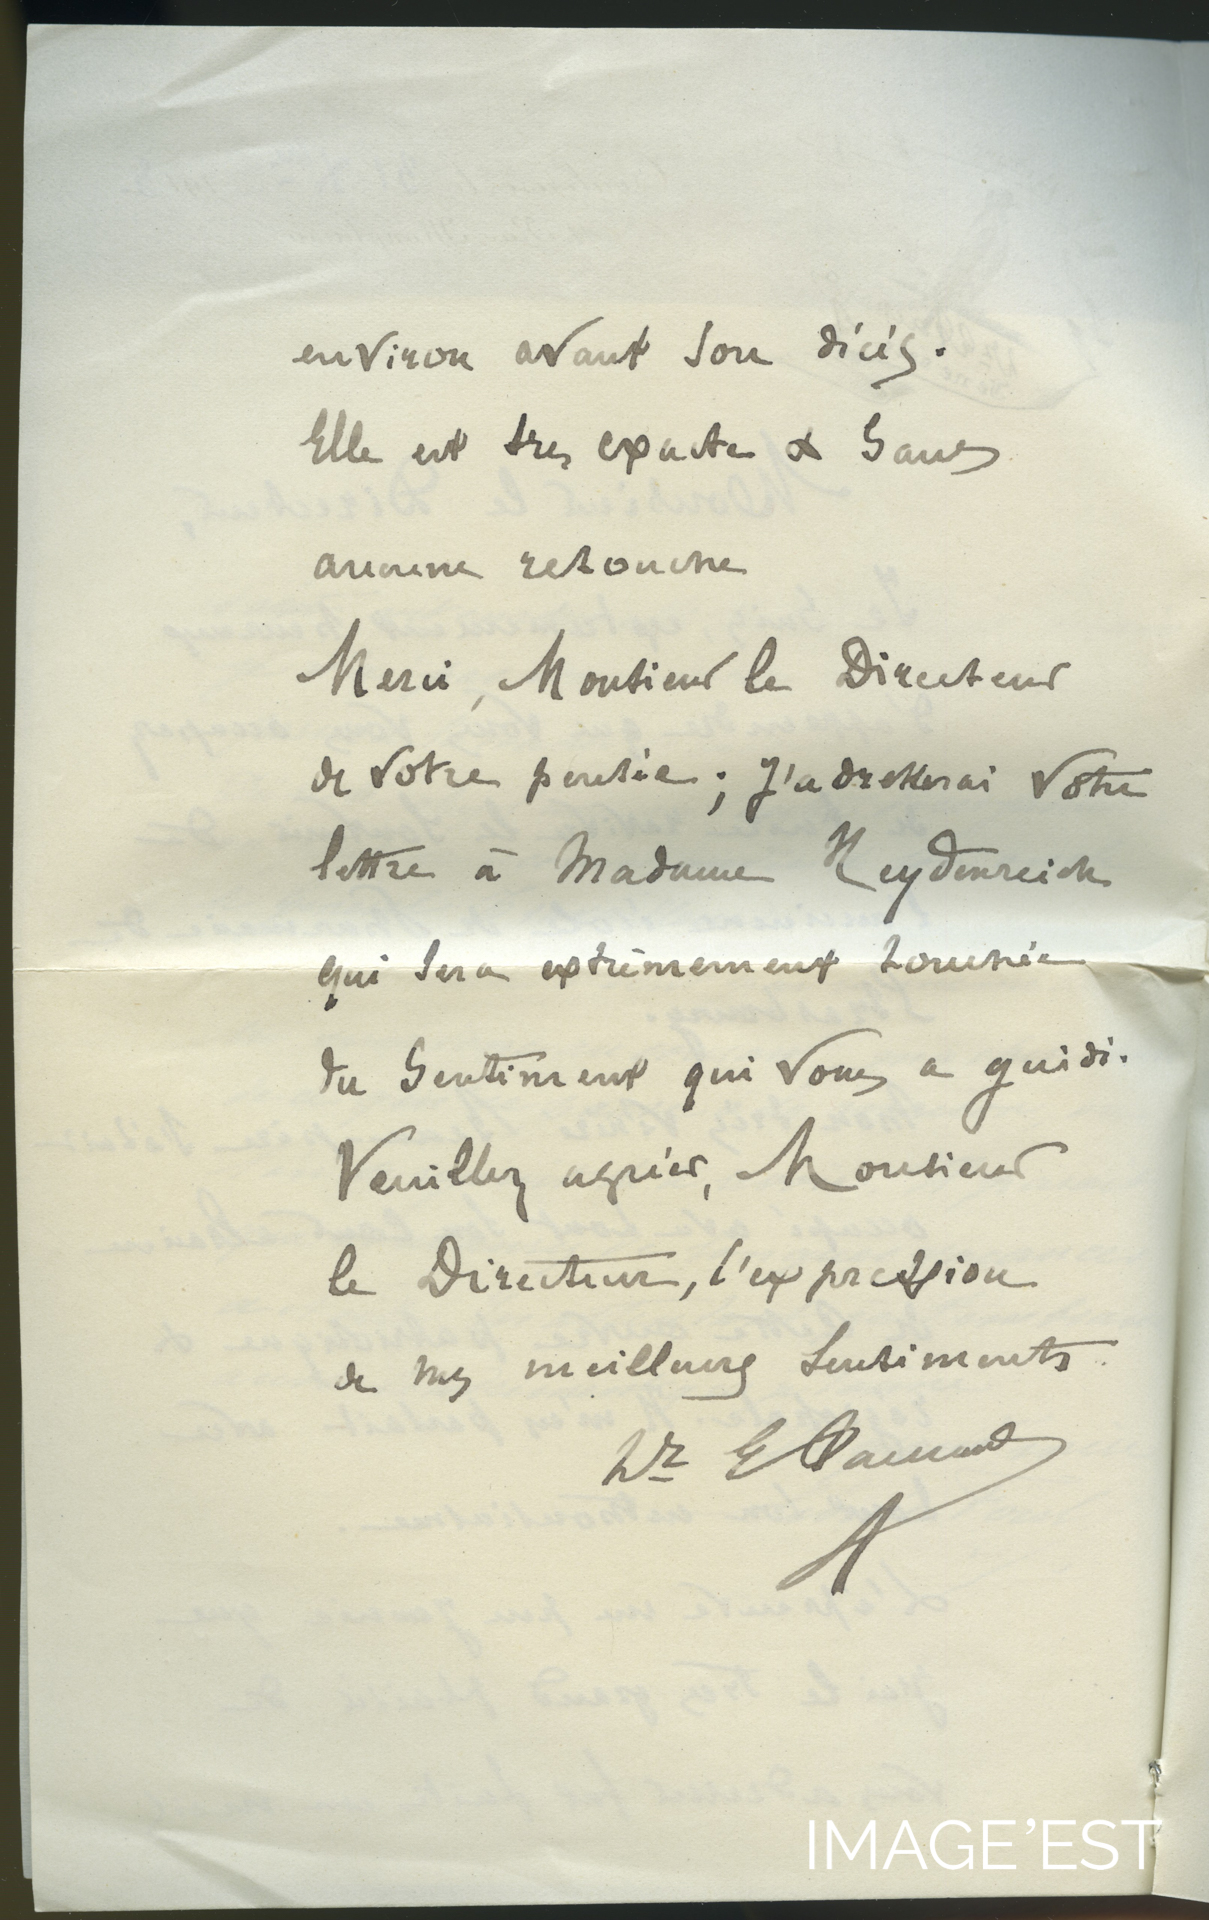 environ avant son décès.
Elle est très exacte & sans
aucune retouche
Merci, Monsieur le Directeur
de votre pensée ; j'adresserai votre
lettre à Madame Heydenreich
qui sera extrèmement touchée
du sentiment qui vous a guidé.
Veuillez agréer, Monsieur
le Directeur, l'expression
de mes meilleurs sentiments
Dr E
IMAGE'EST